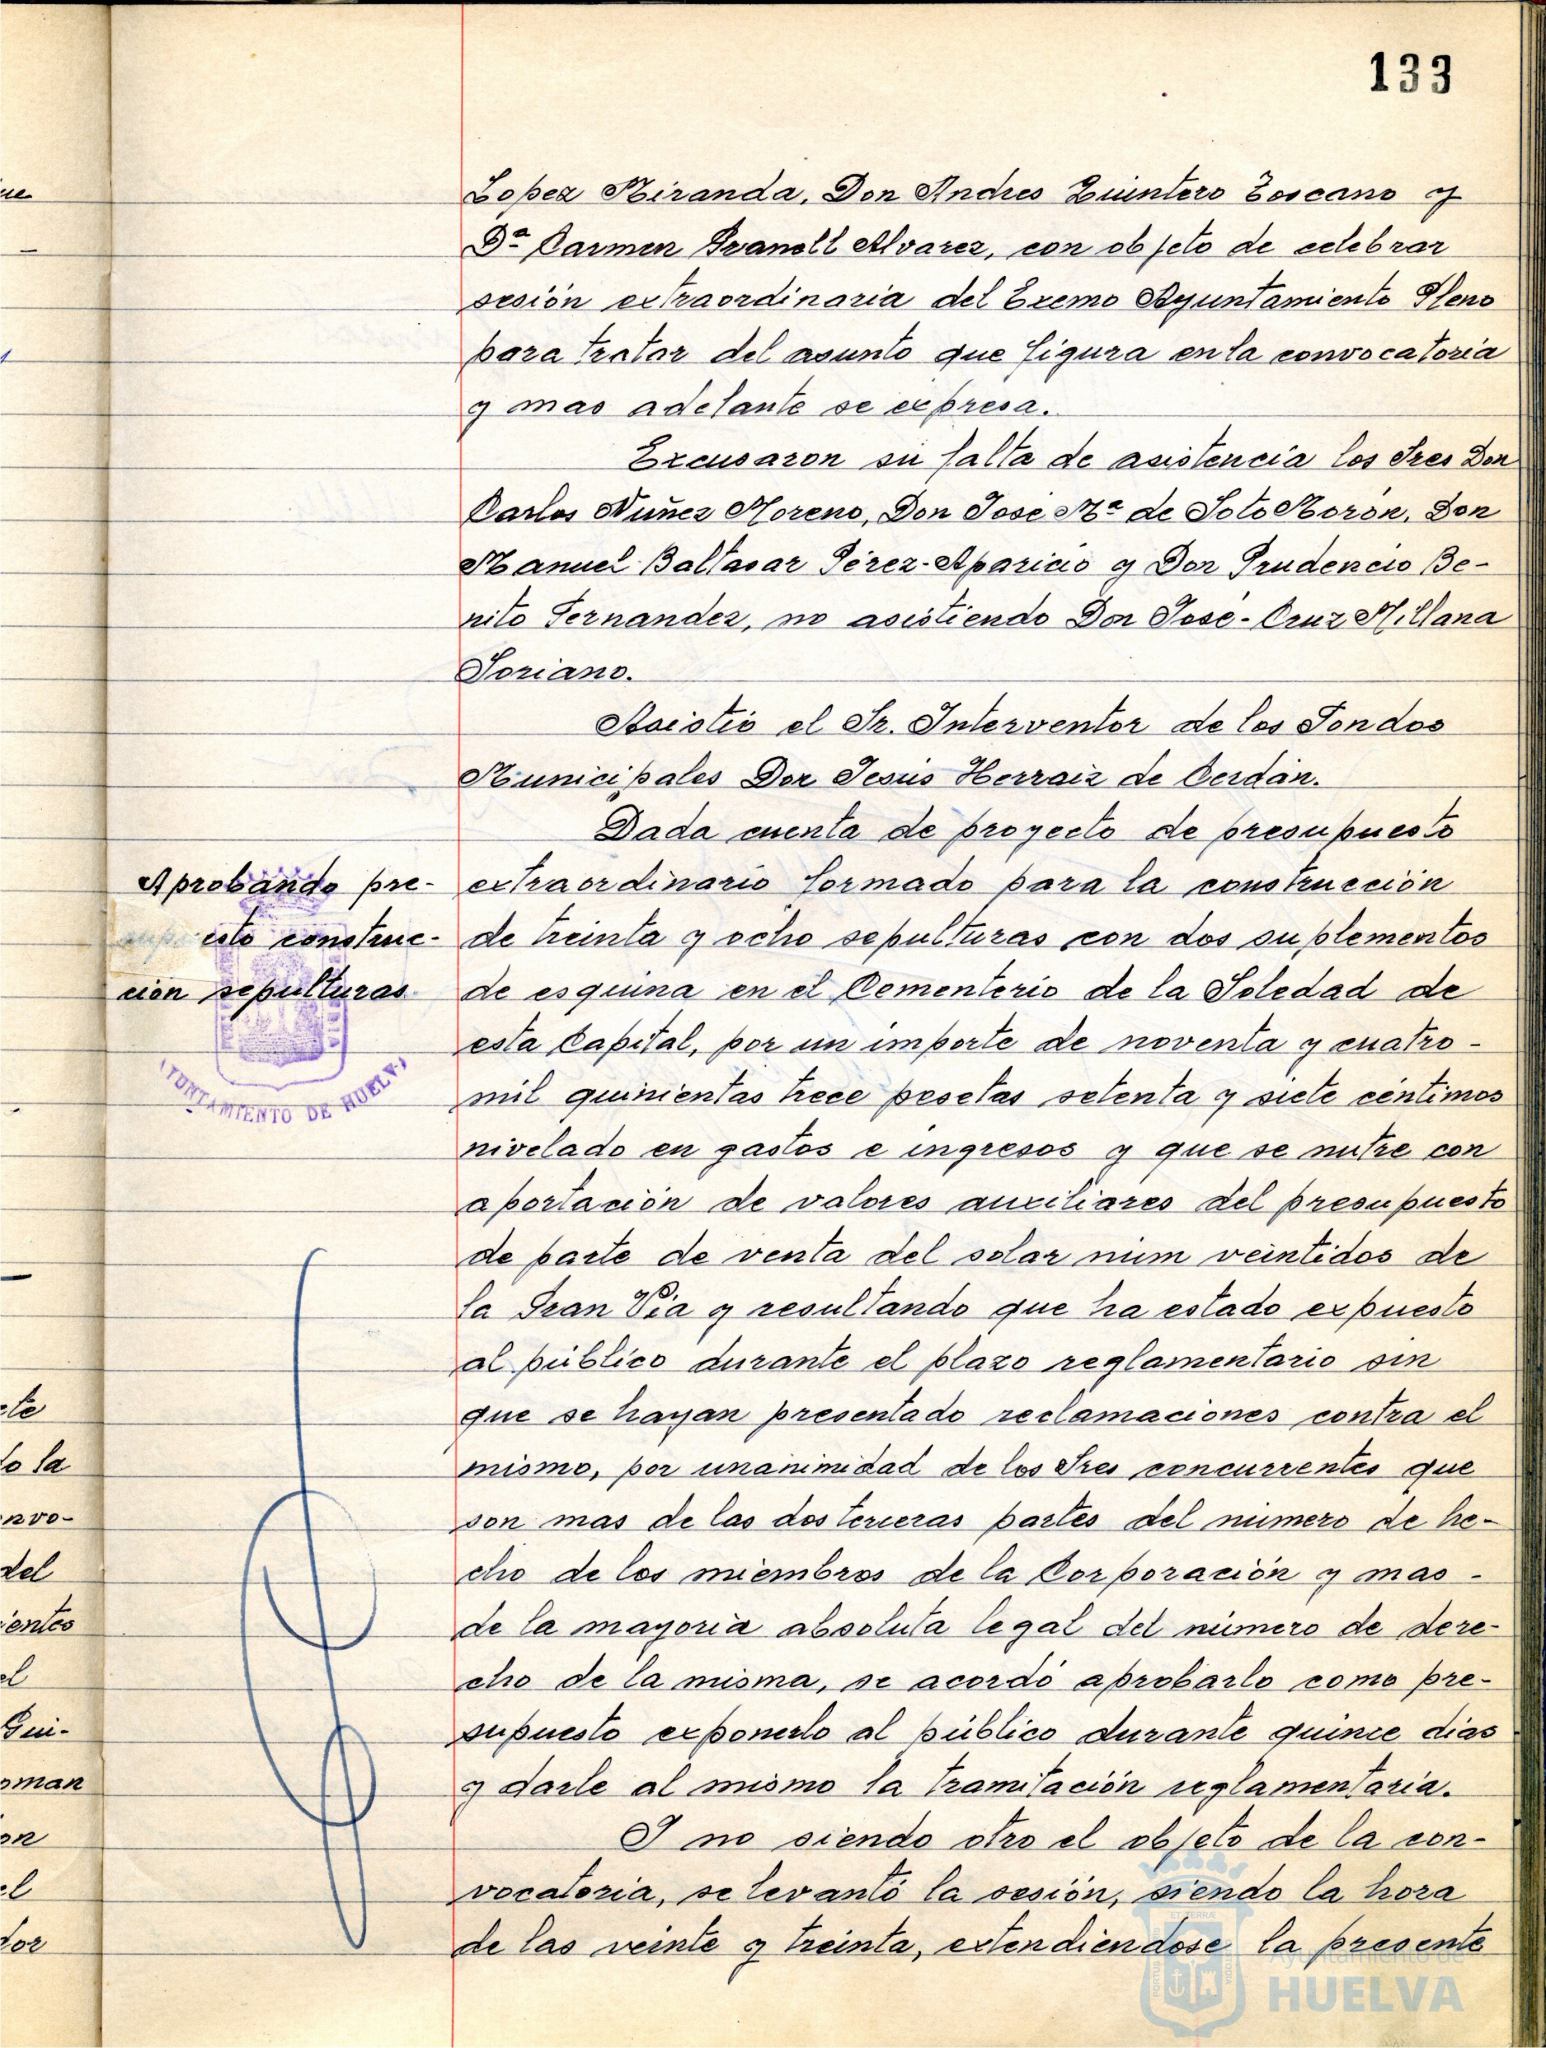 133
Lopez Miranda, Don Andres Quintero Toscano y
Dª Carmen Granell Alvarez, con objeto de celebrar
sesión extraordinaria del Excmo Ayuntamiento Pleno
para tratar del asunto que figura en la convocatoria
y mas adelante se expresa.
Excusaron su falta de asistencia los Sres Don
Carlos Nuñez Moreno, Don José Mª de Soto Morón, Don
Manuel Baltasar Pérez-Aparicio y Don Prudencio Be-
nito Fernandez, no asistiendo Don José-Cruz Millana
Soriano.
Asistió el Sr. Interventor de los Fondos
Municipales Don Jesús Herraiz de Cerdán.
Dada cuenta de proyecto de presupuesto
Aprobando pre-
esto construc-
ción sepulturas
extraordinario formado para la construcción
de treinta y ocho sepulturas con dos suplementos
de esquina en el Cementerio de la Soledad de
esta Capital, por un importe de noventa y cuatro-
mil quinientas trece pesetas setenta y siete céntimos
nivelado en gastos e ingresos y que se nutre con
aportación de valores auxiliares del presupuesto
de parte de venta del solar núm veintidos de
la Gran Vía y resultando que ha estado expuesto
al público durante el plazo reglamentario sin
que se hayan presentado reclamaciones contra el
mismo, por unanimidad de los Sres concurrentes que
son mas de las dos terceras partes del número de he-
cho de los miembros de la Corporación y mas -
de la mayoria absoluta legal del número de dere-
cho de la misma, se acordó aprobarlo como pre-
supuesto exponerlo al público durante quince dias
y darle al mismo la tramitación reglamentaria.
Y no siendo otro el objeto de la con-
vocatoria, se levantó la sesión, siendo la hora
de las veinte y treinta, extendiendose la presente
YUNTAMIENTO DE HUELVA
ue
te
lo la
nvo-
del
ientes
el
Gui-
oman
on
el
tor
Ayuntamiento de
HUELVA